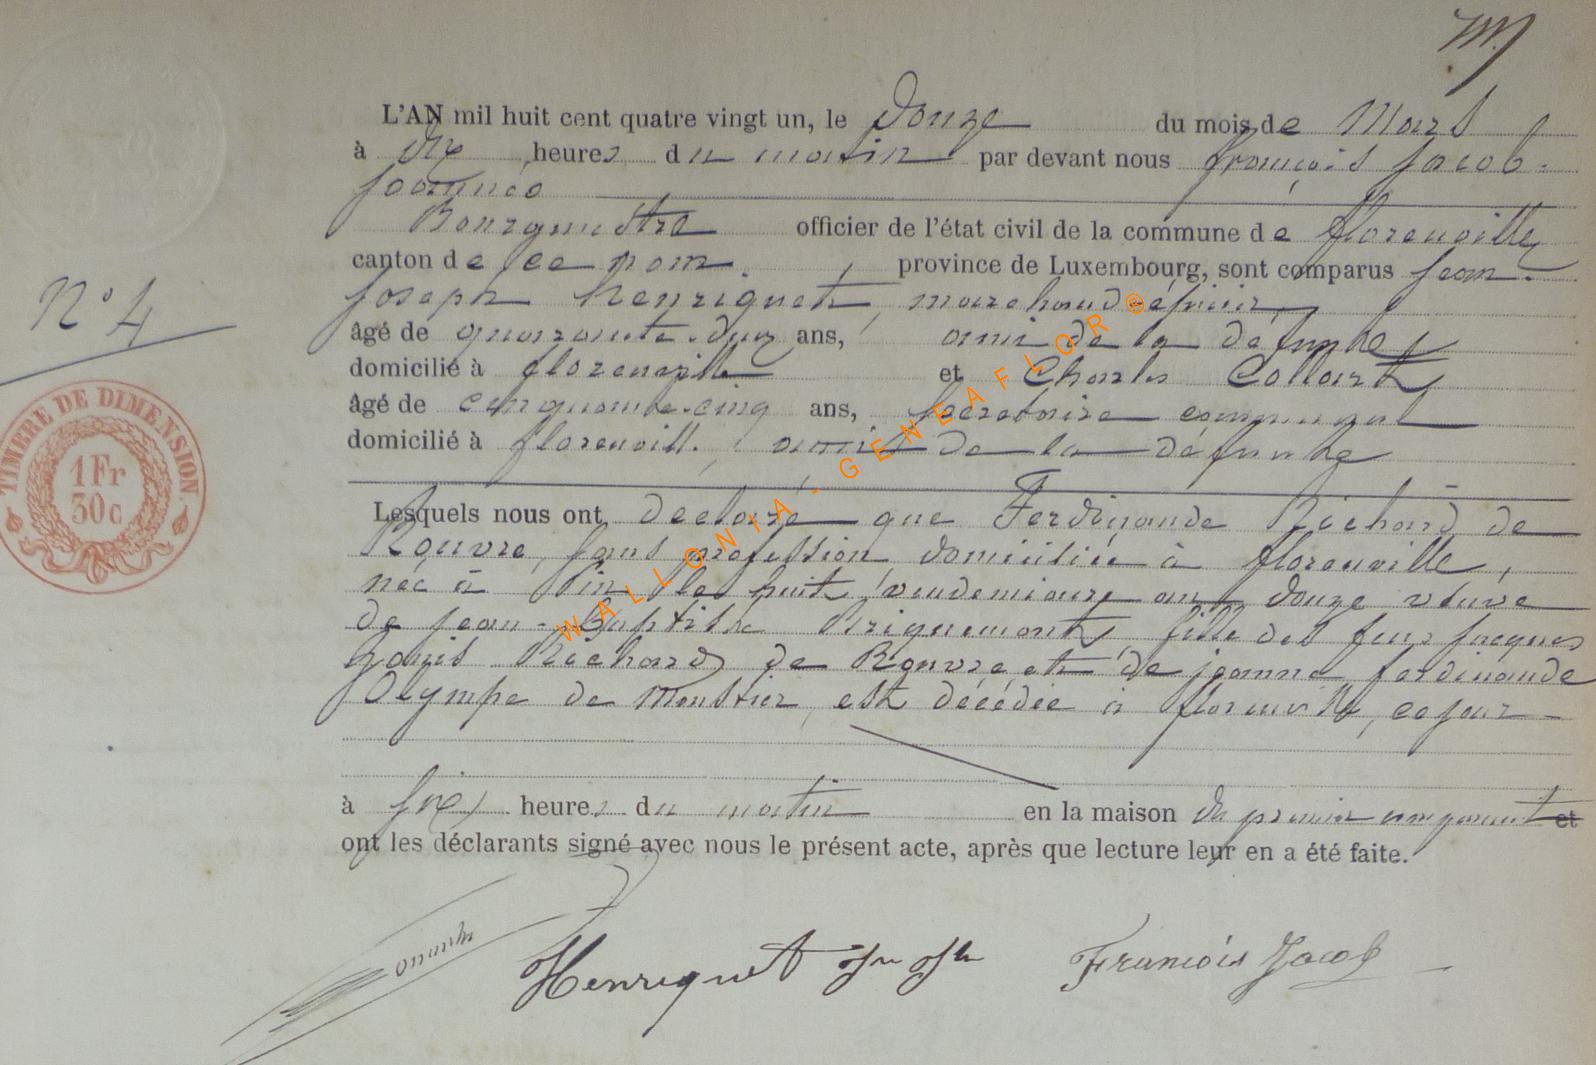 L'AN mil huit cent quatre vingt un, le Douze du mois de Mars
à dix heures du matin par devant nous françois Jacob-
Joannès
Bourgmestre officier de l'état civil de la commune de florenville
canton de ce nom. province de Luxembourg, sont comparus Jean-
Joseph Henriquet, marchand épicier,
âgé de quarante-deux ans, ami de la défunte,
domicilié à florenville et Charles Collart
âgé de cinquante-cinq ans, Secretaire communal
domicilié à florenvill. ami de la défunte
Lesquels nous ont declaré que Ferdinande Richard de
Rouvre, sans profession, domiciliée à florenville,
née à le huit vendemiaire an Douze veuve
de Jean-Baptiste Briquemont, fille des feus Jacques
Louis Richard de Rouvre et de jeanne ferdinande
Olympe de Monstier, est décédée à florenville, ce jour
à six heures du matin en la maison du premier comparant et
ont les déclarants signé avec nous le présent acte, après que lecture leur en a été faite.
Henriquet Jn Jh François Jacob
N° 4
TIMBRE DE DIMENSION.
1 Fr
30c
WALLONIA-GENEAFLOR®